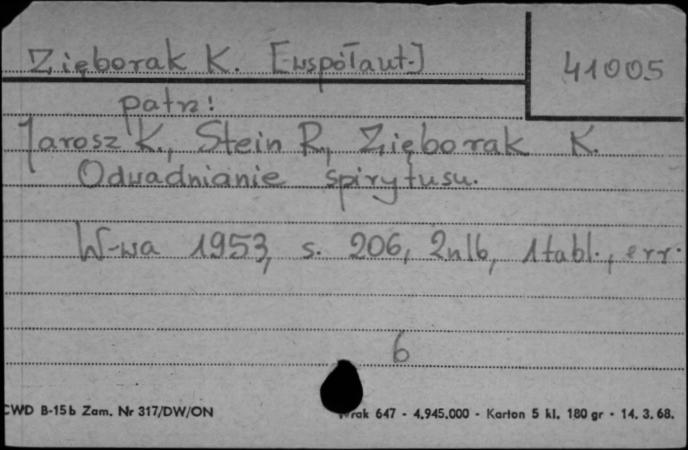 Zięborak K. [współaut.]
41005
patrz:
Jarosz K., Stein R., Zięborak K.
Odwadnianie spirytusu.
W-wa 1953, s. 206, 2nlb, 1tabl., err.
6
CWD B-15b Zam. Nr 317/DW/ON
647 - 4.945.000 - Karton 5 kl. 180 gr - 14. 3. 68.